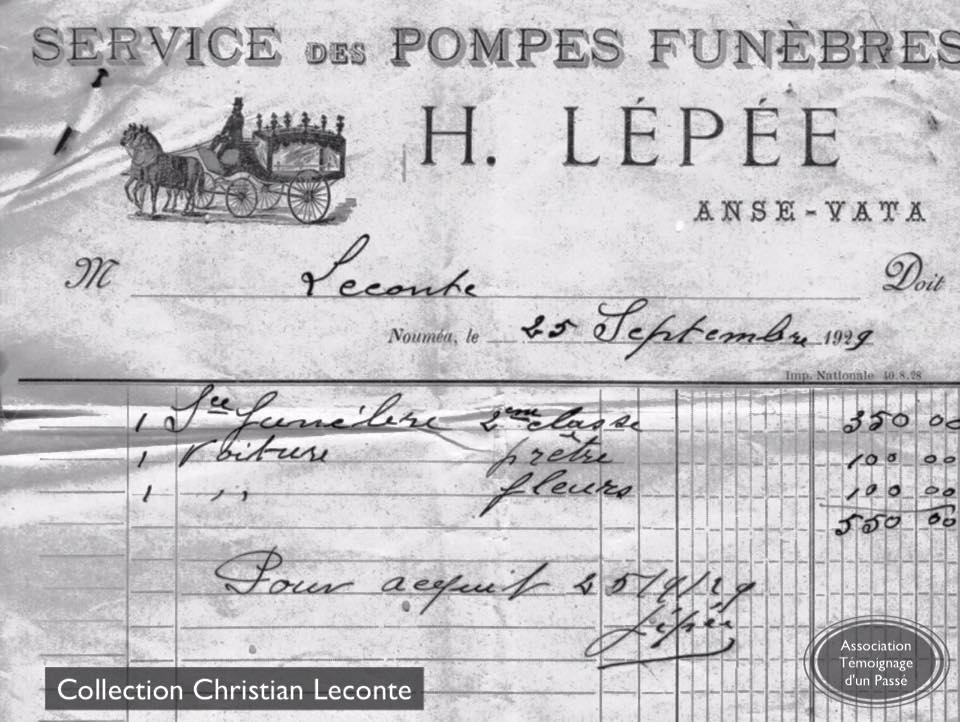 SERVICE DES POMPES FUNÈBRES
H. LÉPÉE
ANSE-VATA
M Leconte Doit
Nouméa, le 25 Septembre 1929
Imp. Nationale 10.8.28
1 Sce funèbre 2ème classe 350 00
1 Voiture prêtre 100 00
1 ,, fleurs 100 00
550 00
Pour acquit 25/9/29
Lépée
Collection Christian Leconte
Association
Témoignage
d'un Passé